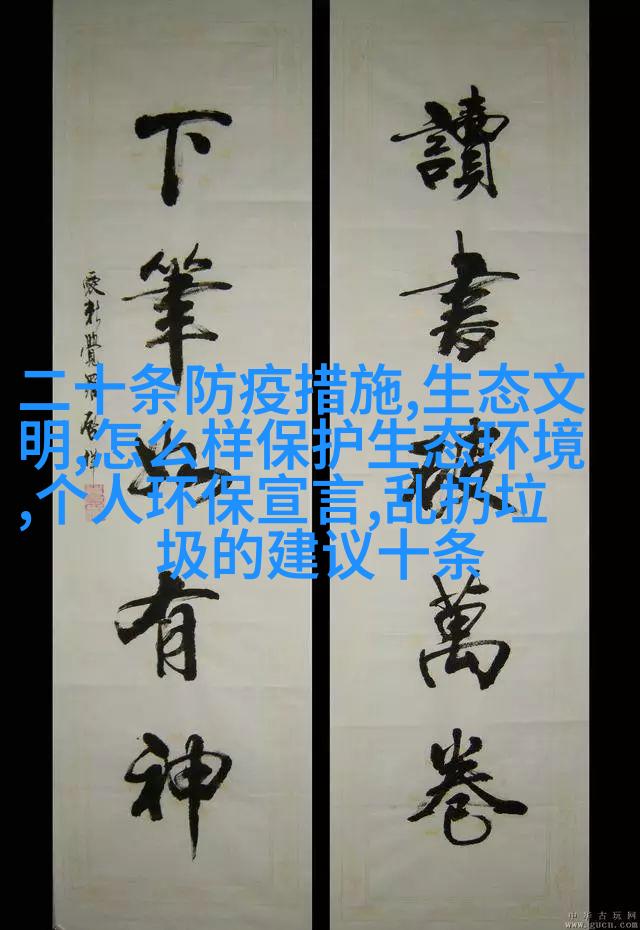 讀書破萬卷
下筆如有神
愛新覺羅
二十条防疫措施,生态文
明,怎么样保护生态环境
,个人环保宣言,乱扔垃
圾的建议十条
中华古玩网
www.gucn.com